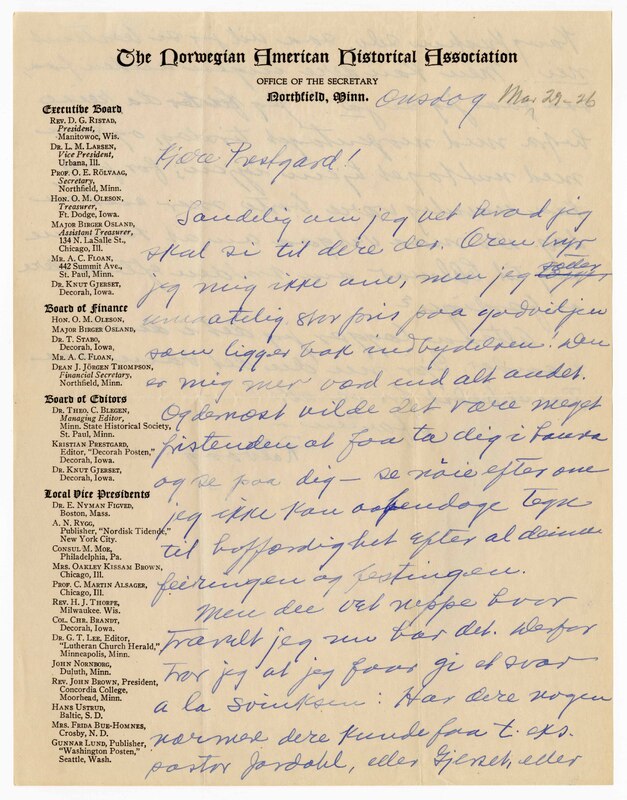 The Norwegian American Historical Association
OFFICE OF THE SECRETARY
Northfield, Minn.
Onsdag Mar 29-26
Executive Board
REV. D. G. RISTAD,
President,
Manitowoc, Wis.
DR. L. M. LARSEN,
Vice President,
Urbana, Ill.
PROF. O. E. RÖLVAAG,
Secretary,
Northfield, Minn.
HON. O. M. OLESON,
Treasurer,
Ft. Dodge, Iowa.
MAJOR BIRGER OSLAND,
Assistant Treasurer,
134 N. LaSalle St.,
Chicago, Ill.
MR. A. C. FLOAN,
442 Summit Ave.,
St. Paul, Minn.
DR. KNUT GJERSET,
Decorah, Iowa.
Board of Finance
HON. O. M. OLESON,
MAJOR BIRGER OSLAND,
DR. T. STABO,
Decorah, Iowa.
MR. A. C. FLOAN,
DEAN J. JÖRGEN THOMPSON,
Financial Secretary,
Northfield, Minn.
Board of Editors
DR. THEO. C. BLEGEN,
Managing Editor,
Minn. State Historical Society,
St. Paul, Minn.
KRISTIAN PRESTGARD,
Editor, "Decorah Posten,"
Decorah, Iowa.
DR. KNUT GJERSET,
Decorah, Iowa.
Local Vice Presidents
DR. E. NYMAN FIGVED,
Boston, Mass.
A. N. RYGG,
Publisher, "Nordisk Tidende,"
New York City.
CONSUL M. MOE,
Philadelphia, Pa.
MRS. OAKLEY KISSAM BROWN,
Chicago, Ill.
PROF. C. MARTIN ALSAGER,
Chicago, Ill.
REV. H. J. THORPE,
Milwaukee, Wis.
COL. CHR. BRANDT,
Decorah, Iowa.
DR. G. T. LEE, Editor,
"Lutheran Church Herald,"
Minneapolis, Minn.
JOHN NORNBORG,
Duluth, Minn.
REV. JOHN BROWN, President,
Concordia College,
Moorhead, Minn.
HANS USTRUD,
Baltic, S. D.
MRS. FRIDA BUE-HOMNES,
Crosby, N. D.
GUNNAR LUND, Publisher,
"Washington Posten,"
Seattle, Wash.
Kjære Prestgard!
Sandelig om jeg vet hvad jeg
skal si til dere der. Æren bryr
jeg mig ikke om, men jeg sætter
umaatelig stor pris paa godviljen
som ligger bak indbydelsen. Den
er mig mer værd end alt andet.
Og dernæst vilde det være meget
fristende at faa ta dig i haanda
og se paa dig — se nøie efter om
jeg ikke kan oppdage tegn
til hoffærdighet efter al denne
feiringen og festingen.
Men du vet neppe hvor
travelt jeg nu har det. Derfor
tror jeg at jeg faar gi et svar
a la : Har dere nogen
nærmer dere kunde faa t. eks.
pastor Jordahl, eller Gjerset, eller